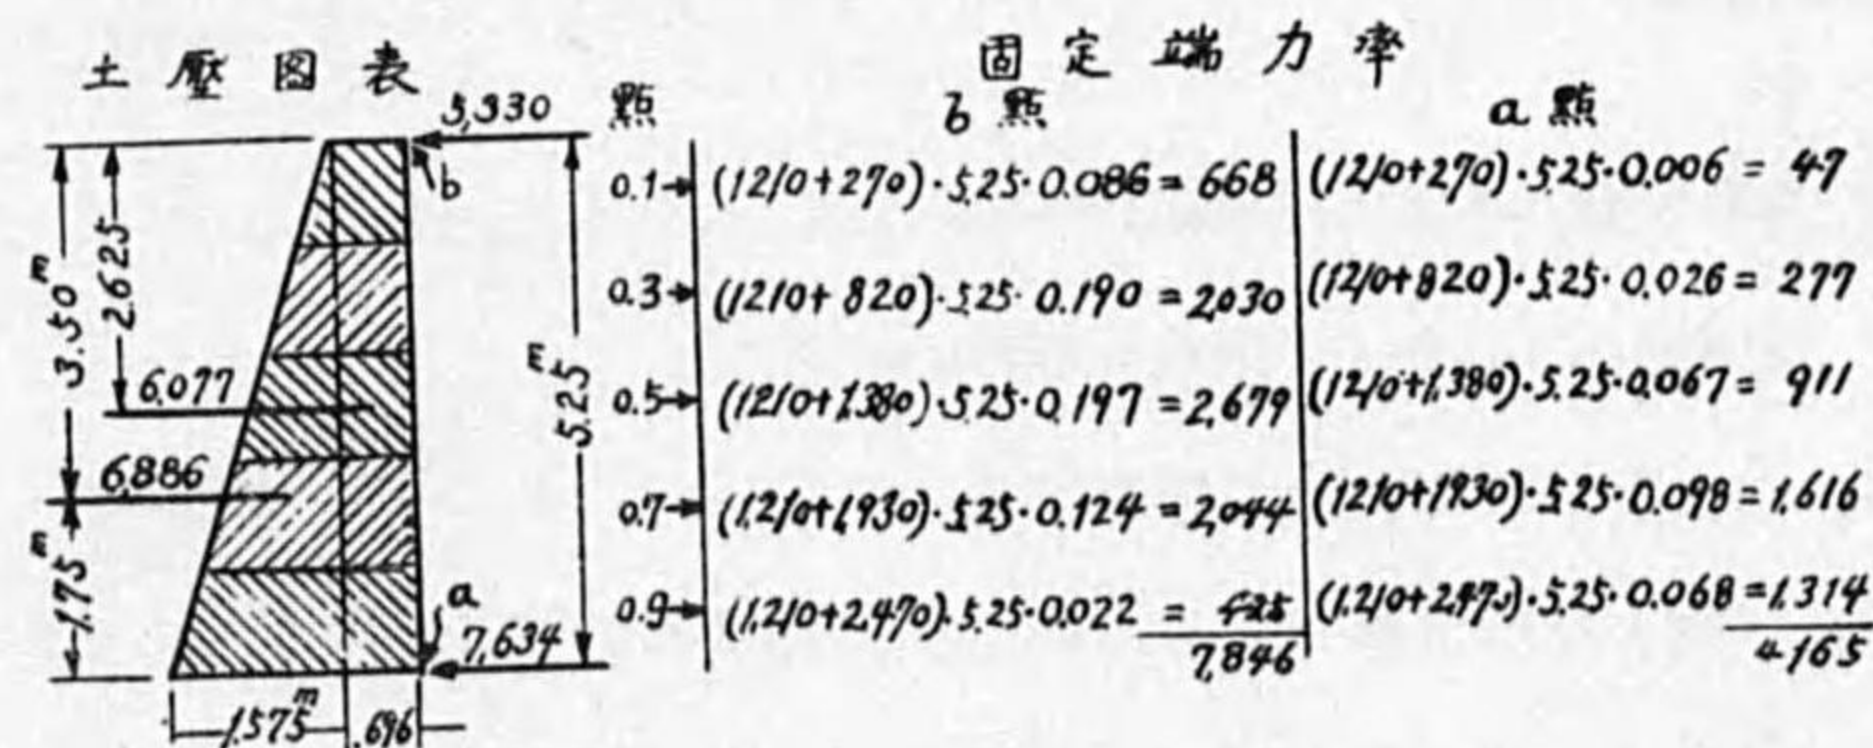 土壓图表
固定端力率
點
b點
a點
5,330
b
2.625
3.50m
5.25m
6.077
6,886
1.75m
a
7,634
1.575m
.696
0.1→ (1210+270)·5.25·0.086 = 668 (1210+270)·5.25·0.006 = 47
0.3→ (1210+820)·5.25·0.190 = 2,030 (1210+820)·5.25·0.026 = 277
0.5→ (1210+1,380)·5.25·0.197 = 2,679 (1210+1,380)·5.25·0.067 = 911
0.7→ (1,210+1,930)·5.25·0.124 = 2,044 (1210+1930)·5.25·0.098 = 1,616
0.9→ (1,210+2,470)·5.25·0.022 = 425 (1,210+2,470)·5.25·0.068 = 1,314
7,846 4,165